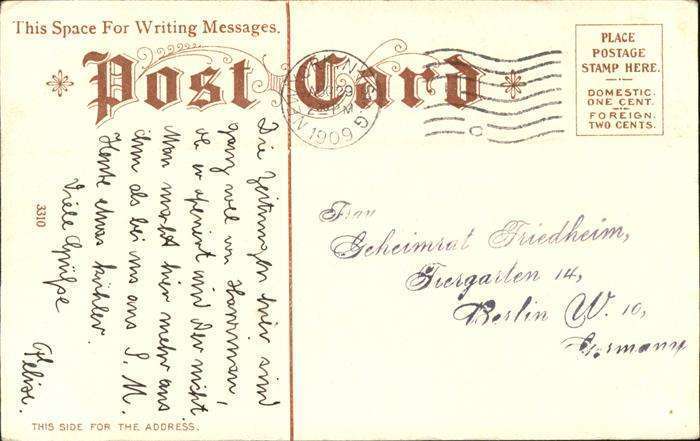 This Space For Writing Messages.
Post Card
PLACE
POSTAGE
STAMP HERE.
DOMESTIC.
ONE CENT.
FOREIGN.
TWO CENTS.
AUG 29
1909
Die Zeitungen hier sind
ganz voll von Harriman,
ob er operiert wird oder nicht
Man macht hier mehr aus
ihm als bei uns aus S. M.
Heute etwas kühler.
Viele Grüße
Felise.
Frau
Geheimrat Friedheim,
Tiergarten 14,
Berlin W. 10,
Germany
3310
THIS SIDE FOR THE ADDRESS.